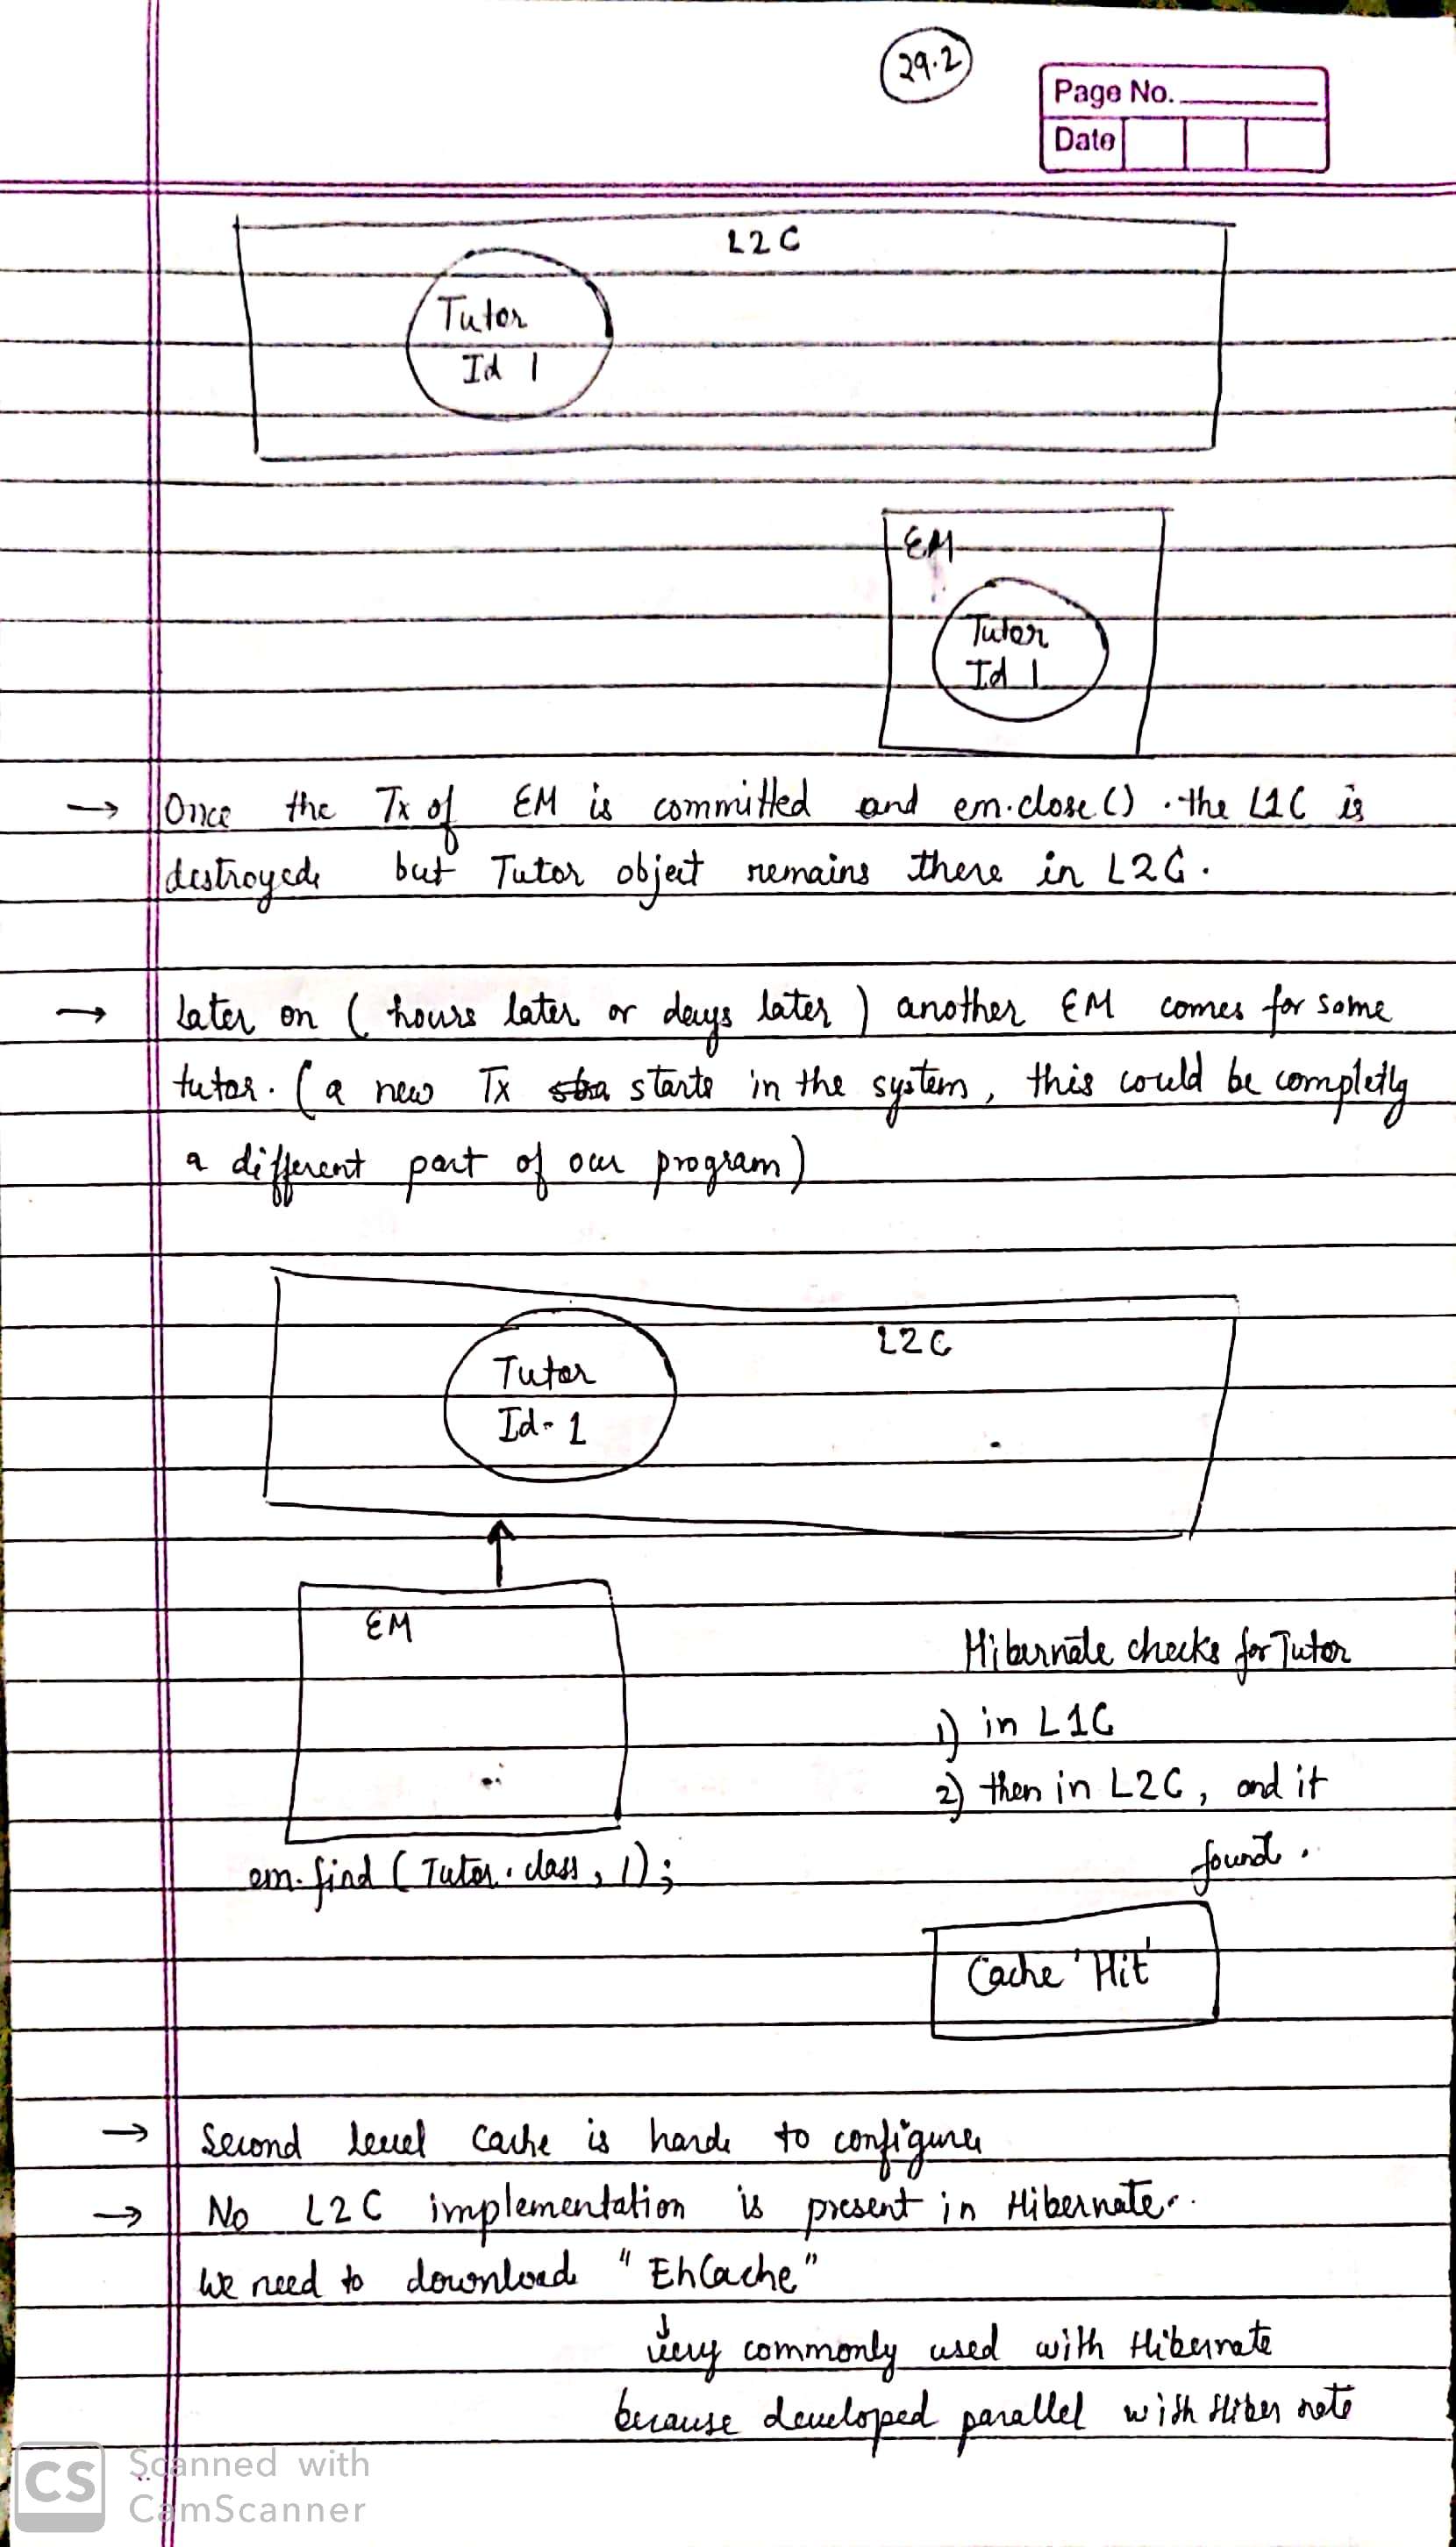 29.2
Page No.
Date
L2C
Tutor
Id 1
EM
Tutor
Id 1
→ Once the Tx of EM is committed and em.close() . the L1C is
destroyed but Tutor object remains there in L2C.
→ Later on ( hours later or days later ) another EM comes for some
tutor. ( a new Tx starts in the system, this could be completly
a different part of our program)
L2C
Tutor
Id-1
EM
Hibernate checks for Tutor
1) in L1C
2) then in L2C, and it
found.
em.find ( Tutor.class, 1);
Cache 'Hit'
→ Second level cache is hard to configure
→ No L2C implementation is present in Hibernate.
We need to download "EhCache"
very commonly used with Hibernate
because developed parallel with Hibernate
CS Scanned with
CamScanner